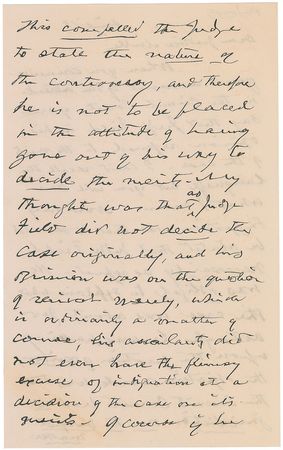 This compelled the Judge
to state the nature of
the controversy, and therefore
he is not to be placed
in the attitude of having
gone out of his way to
decide the merits – My
thought was that as Judge
Field did not decide the
case originally, and his
opinion was on the question
of revivor merely, which
is ordinarily a matter of
course, his assailants did
not even have the flimsy
excuse of indignation at a
decision of the case on its
merits – Of course if he